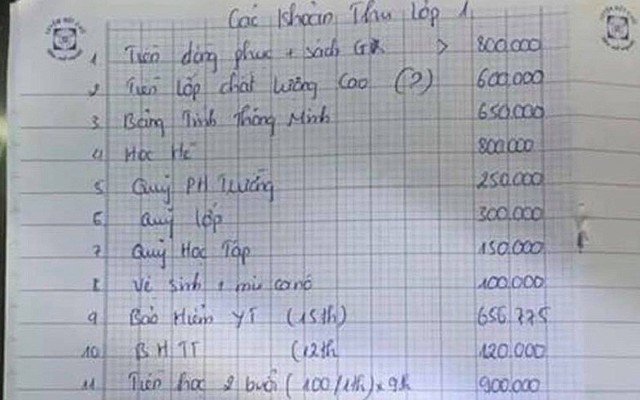 Các Khoản Thu Lớp 1
1 Tiền đồng phục + sách GK > 800.000
2 Tiền Lớp chất lượng Cao (?) 600.000
3 Bảng Tính Thông Minh 650.000
4 Học Hè 800.000
5 Quỹ PH Trường 250.000
6 Quỹ lớp 300.000
7 Quỹ Học Tập 150.000
8 Vệ sinh + mũ ca nô 100.000
9 Bảo Hiểm YT (15th) 656.775
10 BHTT (12th 120.000
11 Tiền học 2 buổi (100/1th) x 9th 900.000